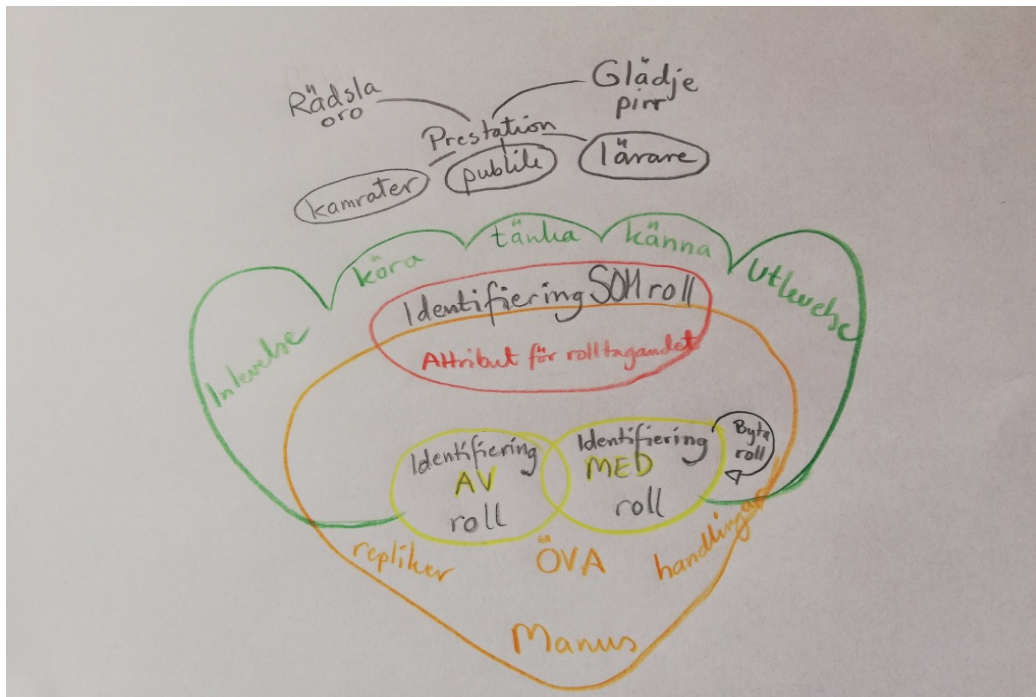 Rädsla
oro
Glädje
pirr
Prestation
kamrater
publik
lärare
Inlevelse
köra
tänka
känna
Utlevelse
Identifiering SOM roll
Attribut för rolltagandet
Identifiering
AV
roll
Identifiering
MED
roll
Byta
roll
repliker
ÖVA
handlingar
Manus